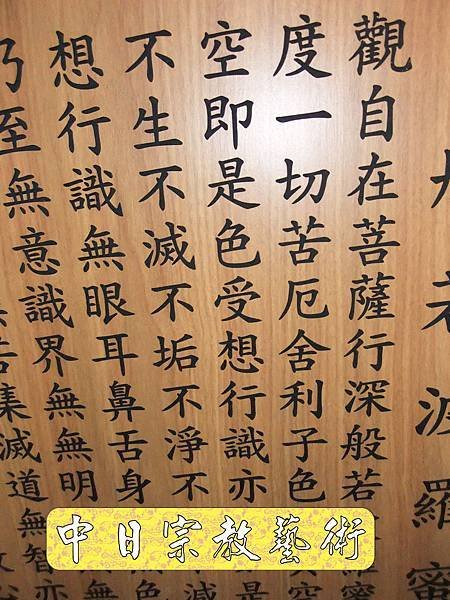 若波羅蜜
觀自在菩薩行深般若
度一切苦厄舍利子色
空即是色受想行識亦
不生不滅不垢不淨不
想行識無眼耳鼻舌身
乃至無意識界無無明
集滅道無智亦
中日宗教藝術